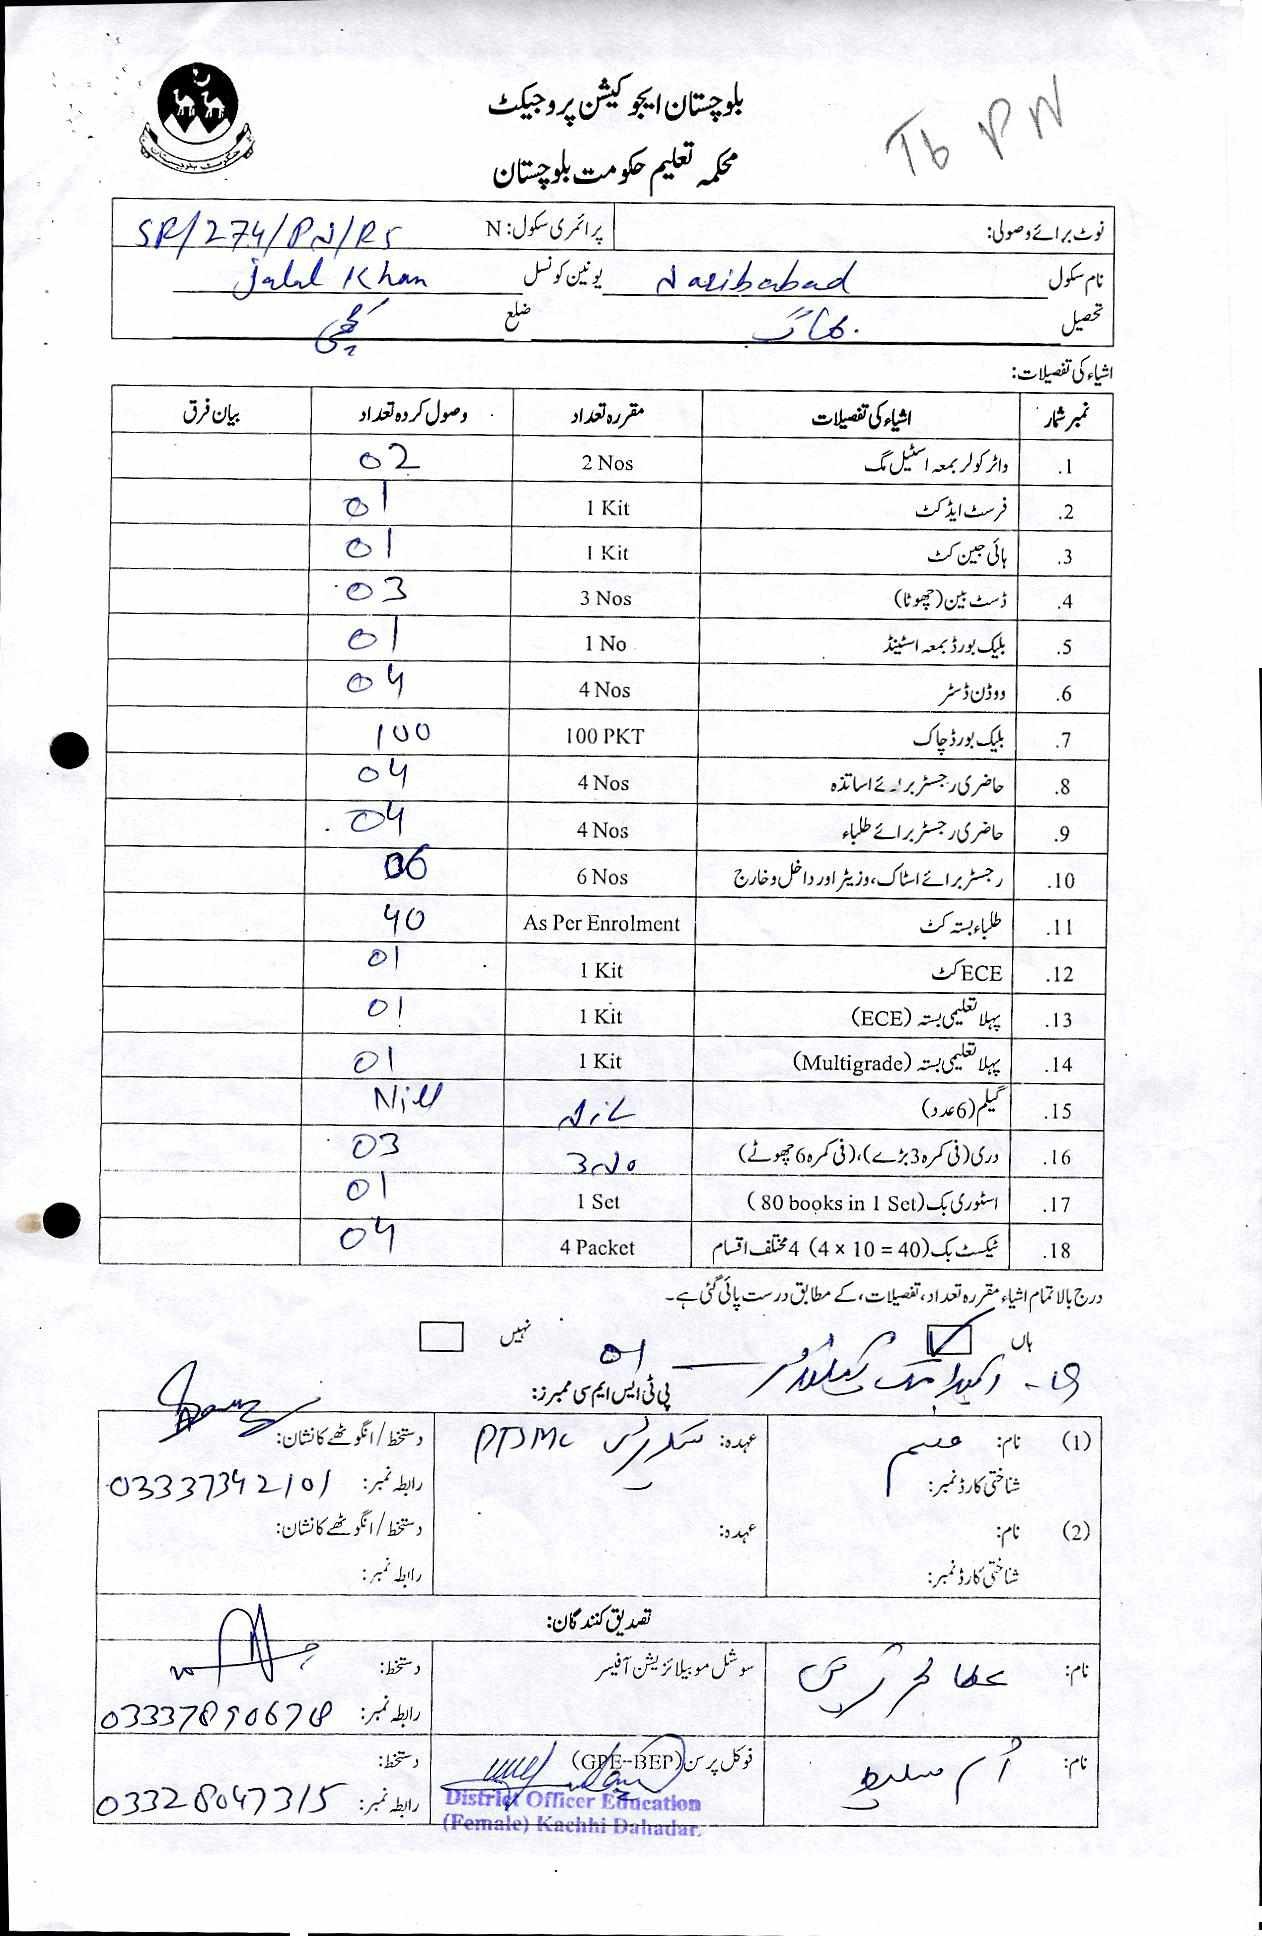 بلوچستان ایجوکیشن پروجیکٹ
Tb PN
محکمہ تعلیم حکومت بلوچستان
حکومت بلوچستان
نوٹ برائے وصولی: پرائمری سکول: N SR/274/PN/RS
نام سکول Nasibabad یونین کونسل Jalal Khan
تحصیل بھاگ ضلع کچھی
اشیاء کی تفصیلات:
نمبر شمار اشیاء کی تفصیلات مقررہ تعداد وصول کردہ تعداد بیان فرق
1. واٹر کولر بمعہ اسٹیل مگ 2 Nos 02
2. فرسٹ ایڈ کٹ 1 Kit 01
3. ہائی جین کٹ 1 Kit 01
4. ڈسٹ بین (چھوٹا) 3 Nos 03
5. بلیک بورڈ بمعہ اسٹینڈ 1 No 01
6. ووڈن ڈسٹر 4 Nos 04
7. بلیک بورڈ چاک 100 PKT 100
8. حاضری رجسٹر برائے اساتذہ 4 Nos 04
9. حاضری رجسٹر برائے طلباء 4 Nos 04
10. رجسٹر برائے اسٹاک، وزیٹر اور داخل و خارج 6 Nos 06
11. طلباء بستہ کٹ As Per Enrolment 40
12. ECE کٹ 1 Kit 01
13. پہلا تعلیمی بستہ (ECE) 1 Kit 01
14. پہلا تعلیمی بستہ (Multigrade) 1 Kit 01
15. گیلم (6 عدد) Nil Nill
16. دری (فی کمرہ 3 بڑے)، (فی کمرہ 6 چھوٹے) 3 No 03
17. اسٹوری بک (80 books in 1 Set) 1 Set 01
18. ٹیکسٹ بک (4 × 10 = 40) 4 مختلف اقسام 4 Packet 04
درج بالا تمام اشیاء مقررہ تعداد، تفصیلات، کے مطابق درست پائی گئی ہے۔
ہاں نہیں
19- 01
پی ٹی ایس ایم سی ممبرز:
(1) نام: عہدہ: PTSMC دستخط/انگوٹھے کا نشان:
شناختی کارڈ نمبر: رابطہ نمبر: 03337342101
(2) نام: عہدہ: دستخط/انگوٹھے کا نشان:
شناختی کارڈ نمبر: رابطہ نمبر:
تصدیق کنندگان:
نام: سوشل موبیلائزیشن آفیسر دستخط:
رابطہ نمبر: 03337890678
نام: فوکل پرسن (GPE-BEP) دستخط:
رابطہ نمبر: 03328047315
District Officer Education
(Female) Kachhi Dahadar.